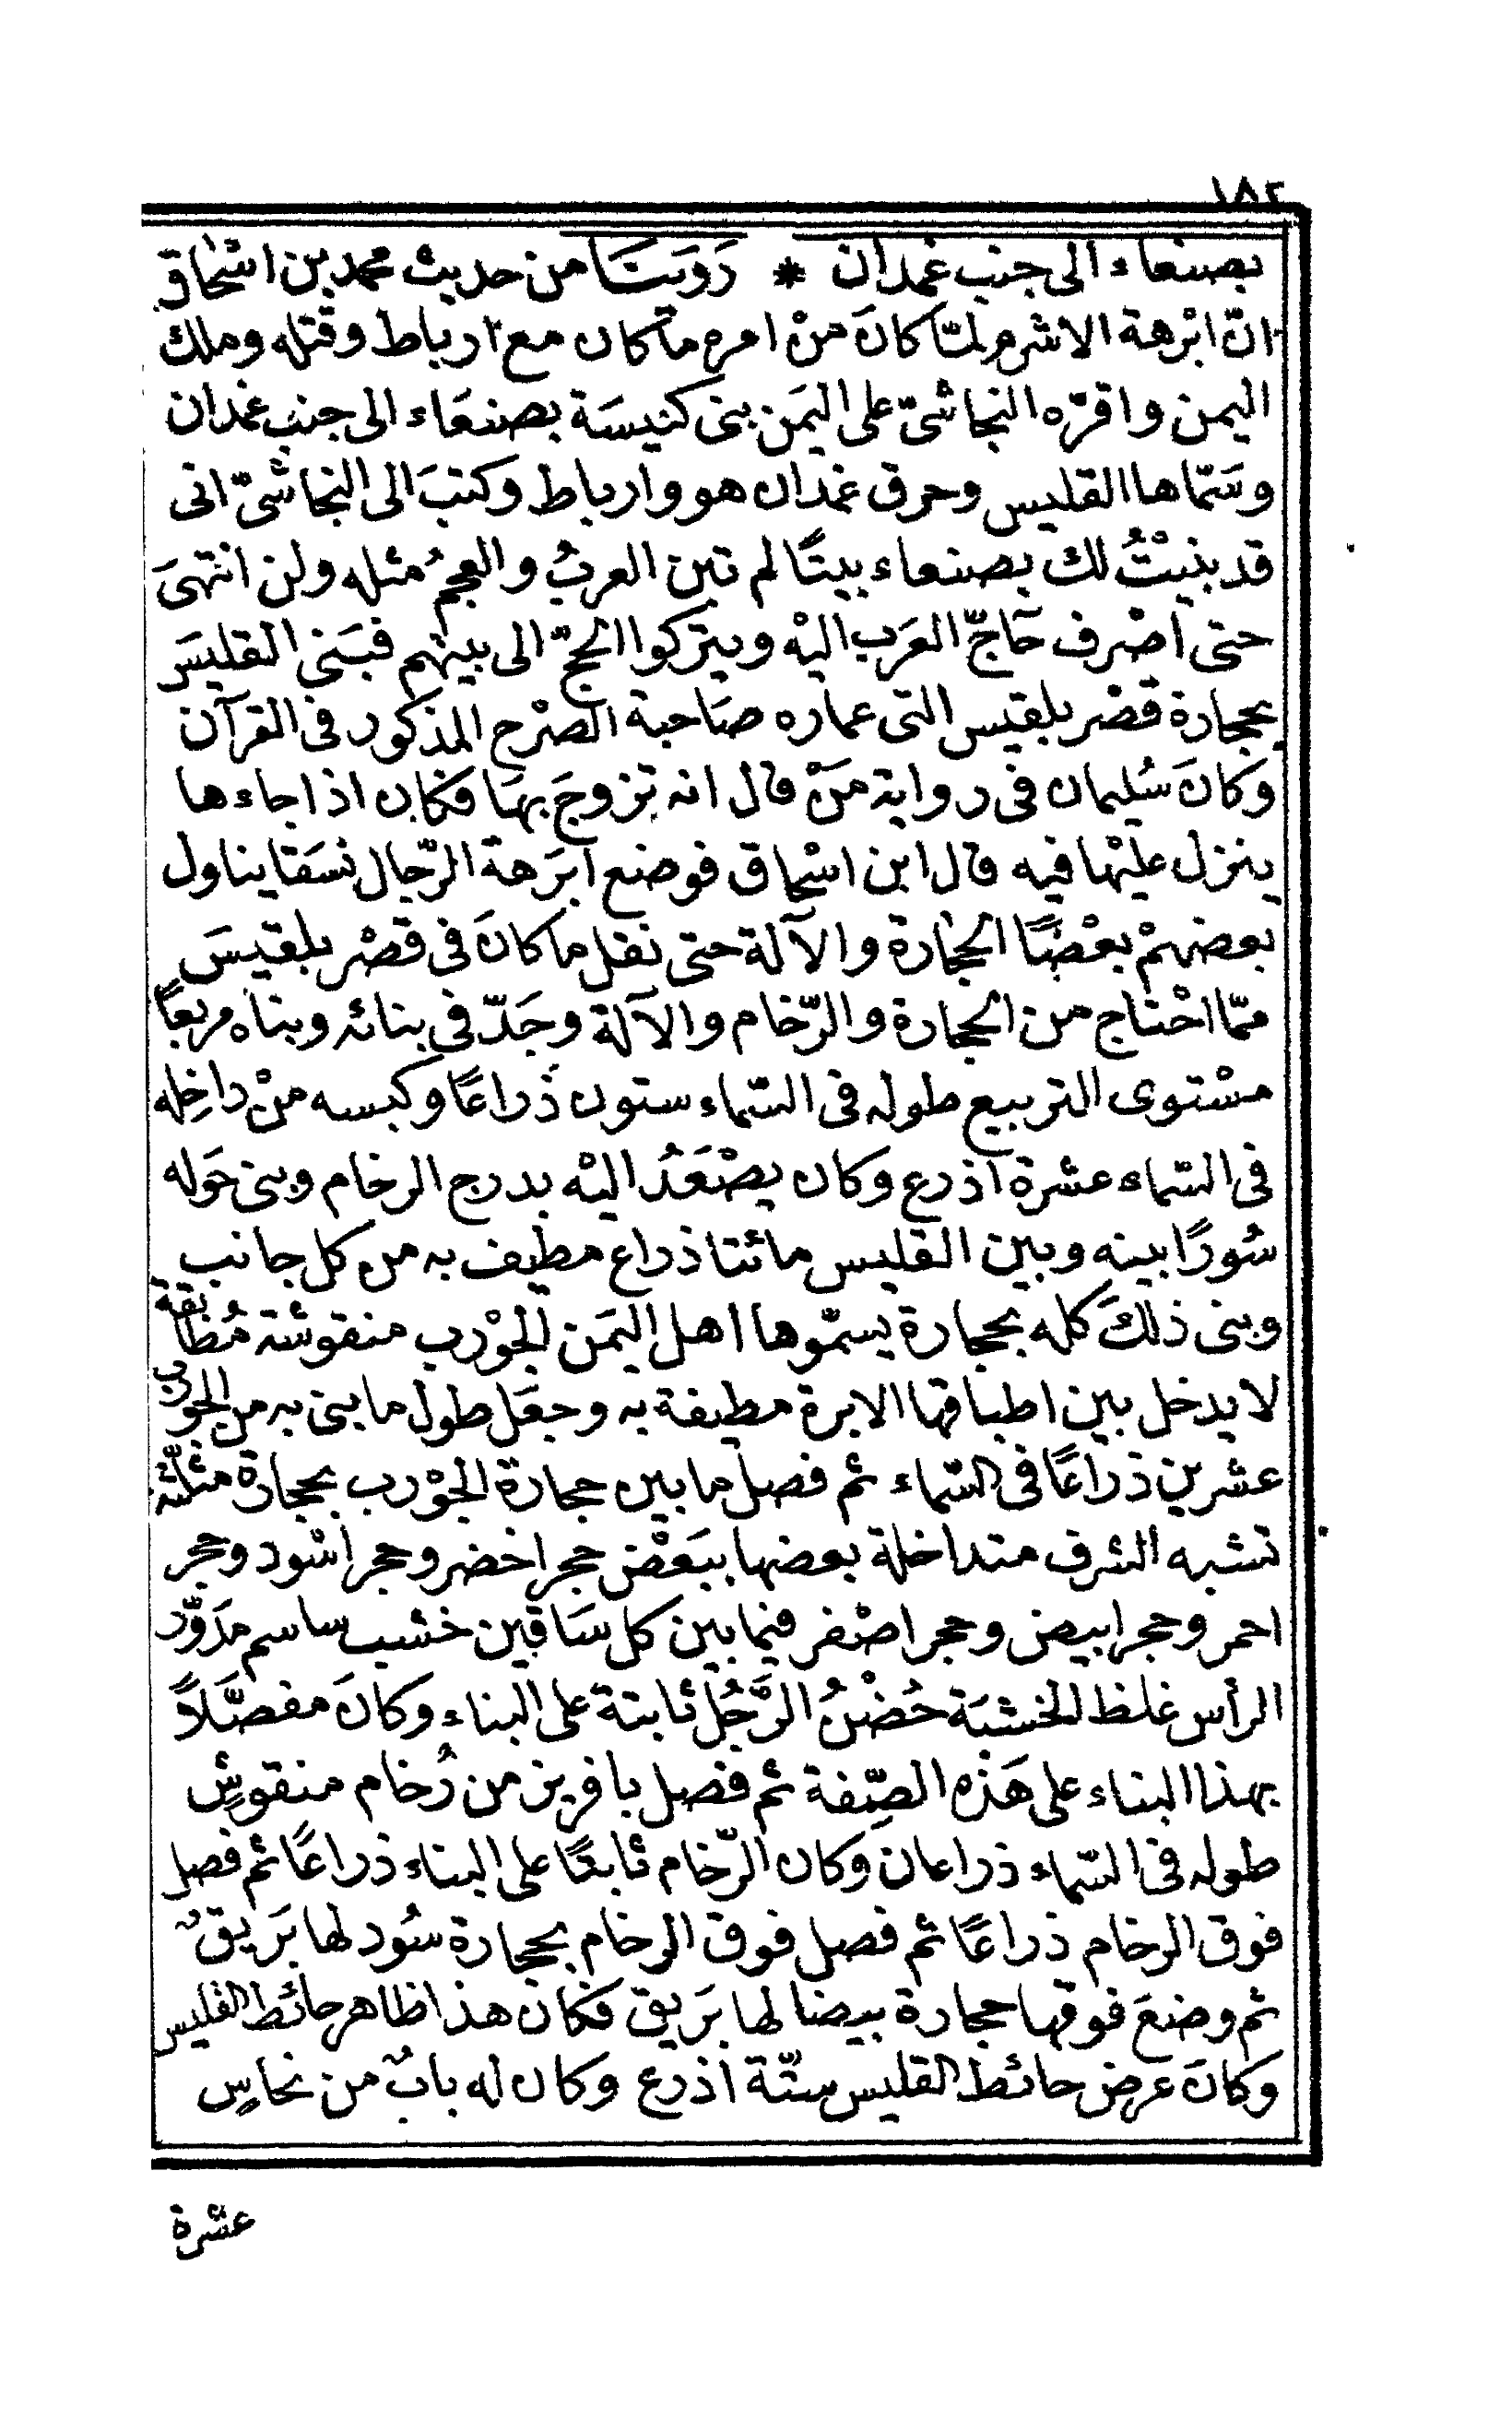 ١٨٢
بصنعاء الى جنب غمدان * رَوَينَا من حديث محمد بن اسْحاق
انّ ابْرهة الاشرم لمّا كانَ منْ امره ما كان مع ارياط وقتله وملك
اليمن واقرّه النجاشىّ على اليَمَن بنى كنيسَة بصنعَاء الى جنب غمدان
وسَمّاها القليس وحرق غمدان هو وارياط وكتبَ الى النجاشىّ انى
قد بنيْتُ لك بصنعاء بيتًا لم تبن العربُ والعجمُ مثله ولن انتهىَ
حتى اصْرف حَاجّ العَرَب اليْه ويتركوا الحجّ الى بيتهم فبَنى القليسَ
بحجارة قصْر بلقيس التى عماره صَاحبة الصّرْح المذكور فى القرآن
وَكانَ سُليمان فى رواية مَنْ قال انه تزوجَ بهَا فكان اذا جاءها
ينزل عليْها فيه قال ابن اسْحاق فوضع ابَرهة الرّجال نسَقا يناول
بعضهمْ بعْضًا الحجَارة والآلة حتى نقل ما كانَ فى قصْر بلقيسَ
ممّا احْتاج من الحجارة والرّخام والآلة وجَدّ فى بنائه وبناه مربعًا
مسْتوى التربيع طوله فى السّماء ستون ذراعًا وكبسه منْ داخِله
فى السّماء عشرة اذرع وكان يصْعَدُ اليْه بدرج الرخام وبنى حَوله
سُورًا بينه وبين القليس مائتا ذراع مطيف به من كل جانب
وبنى ذلكَ كله بحجارة يسمّوها اهل اليَمَن الجوْرب منقوشة مُطابقة
لا يدخل بين اطباقها الابرة مطيفة به وجعَل طول ما بنى به من الجورب
عشرين ذراعًا فى السّماء ثم فصل ما بين حجارة الجوْرب بحجارة مثلّثة
تشبه الشرف متداخلة بعضها ببَعْض حجر اخضر وحجر اسْود وحجر
احمر وحجر ابيض وحجر اصْفر فيما بين كل سَاقين خشب ساسم مدَوّر
الرأس غلظ الخشبَة حُضْنُ الرَّجُل ثابتة على البناء وكانَ مفصّلاً
بهذا البناء على هَذه الصِّفة ثم فصل بافريز من رُخام منقوشٍ
طوله فى السّماء ذراعان وكان الرّخام ثابتًا على البناء ذراعًا ثم فصل
فوق الرخام ذراعًا ثم فصل فوق الرخام بحجارة سُود لها بَريقٌ
ثم وضعَ فوقها حجارة بيضا لها بَريق فكان هذا ظاهر حائط القليس
وَكانَ عرض حائط القليس ستّة اذرع وكان له بابٌ من نحاسٍ
عشرة